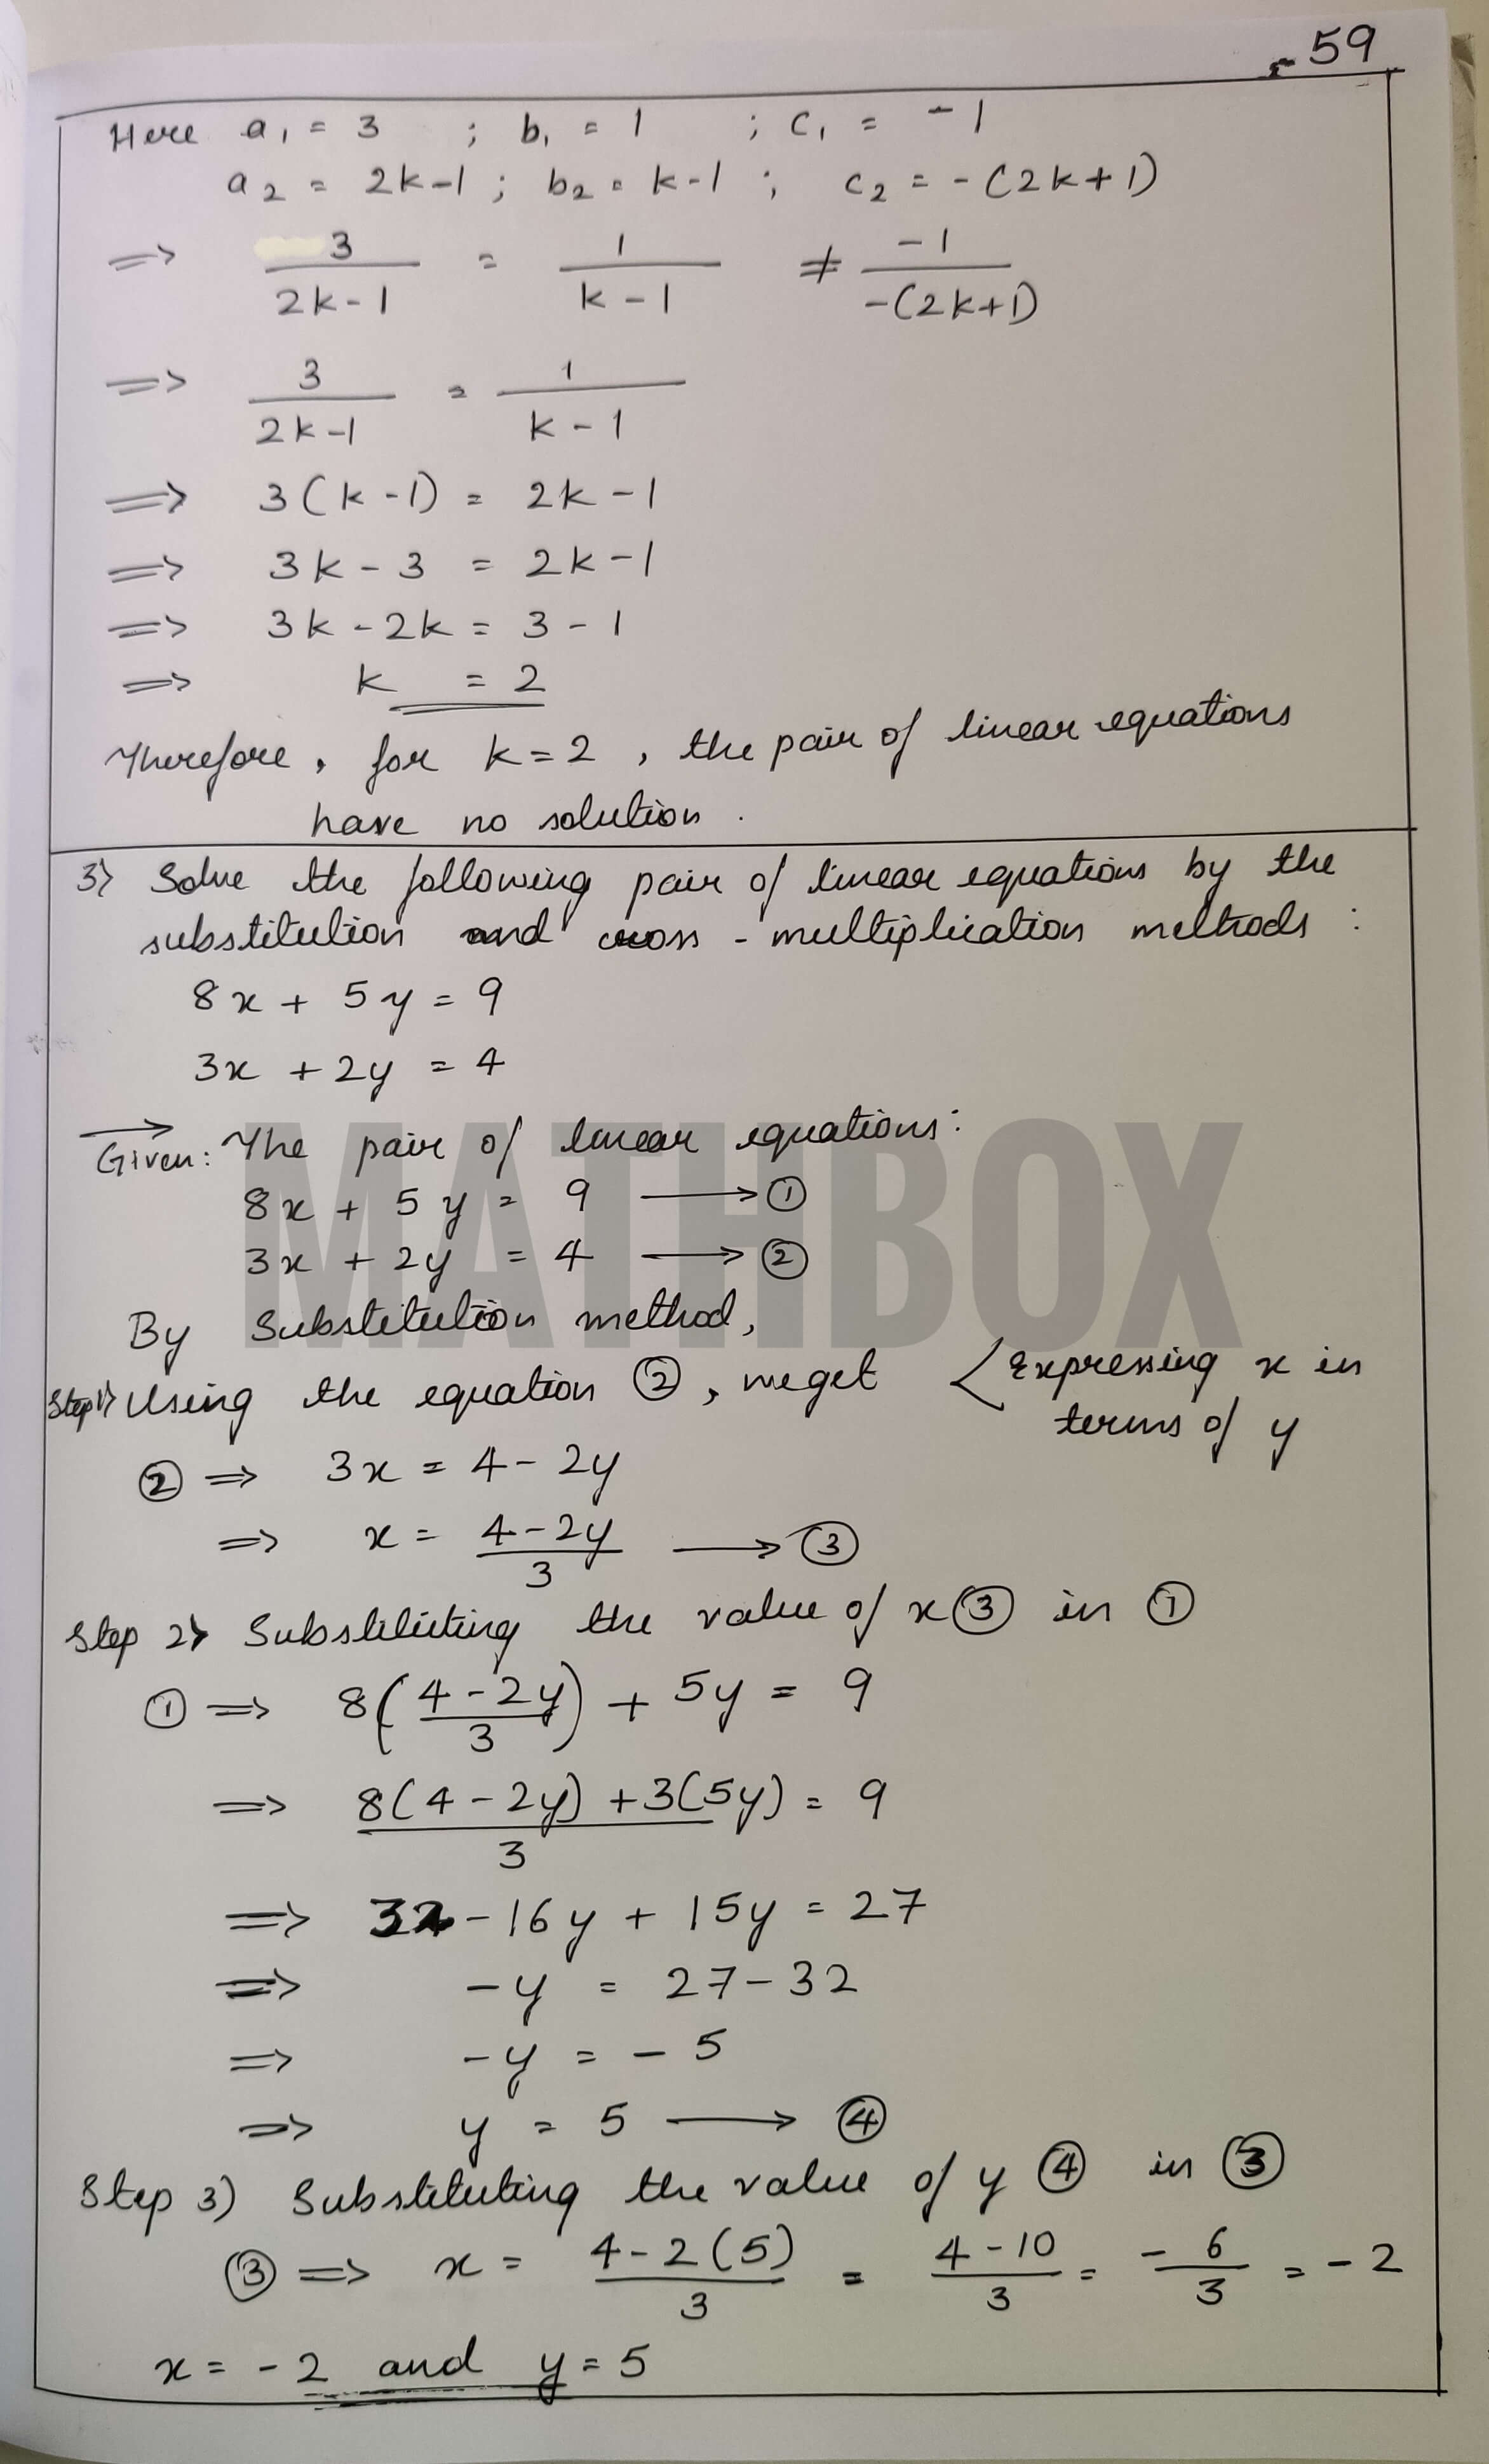 59
Here a₁ = 3 ; b₁ = 1 ; c₁ = -1
a₂ = 2k-1 ; b₂ = k-1 ; c₂ = -(2k+1)
⇒ 3/(2k-1) = 1/(k-1) ≠ -1/-(2k+1)
⇒ 3/(2k-1) = 1/(k-1)
⇒ 3(k-1) = 2k-1
⇒ 3k-3 = 2k-1
⇒ 3k-2k = 3-1
⇒ k = 2
Therefore, for k=2, the pair of linear equations
have no solution.
3) Solve the following pair of linear equations by the
substitution and cross-multiplication methods:
8x + 5y = 9
3x + 2y = 4
Given: The pair of linear equations:
8x + 5y = 9 → ①
3x + 2y = 4 → ②
MATHBOX
By Substitution method,
Step 1) Using the equation ②, we get < Expressing x in
terms of y
② ⇒ 3x = 4-2y
⇒ x = (4-2y)/3 → ③
Step 2) Substituting the value of x ③ in ①
① ⇒ 8((4-2y)/3) + 5y = 9
⇒ (8(4-2y)+3(5y))/3 = 9
⇒ 32-16y + 15y = 27
⇒ -y = 27-32
⇒ -y = -5
⇒ y = 5 → ④
Step 3) Substituting the value of y ④ in ③
③ ⇒ x = (4-2(5))/3 = (4-10)/3 = -6/3 = -2
x = -2 and y = 5